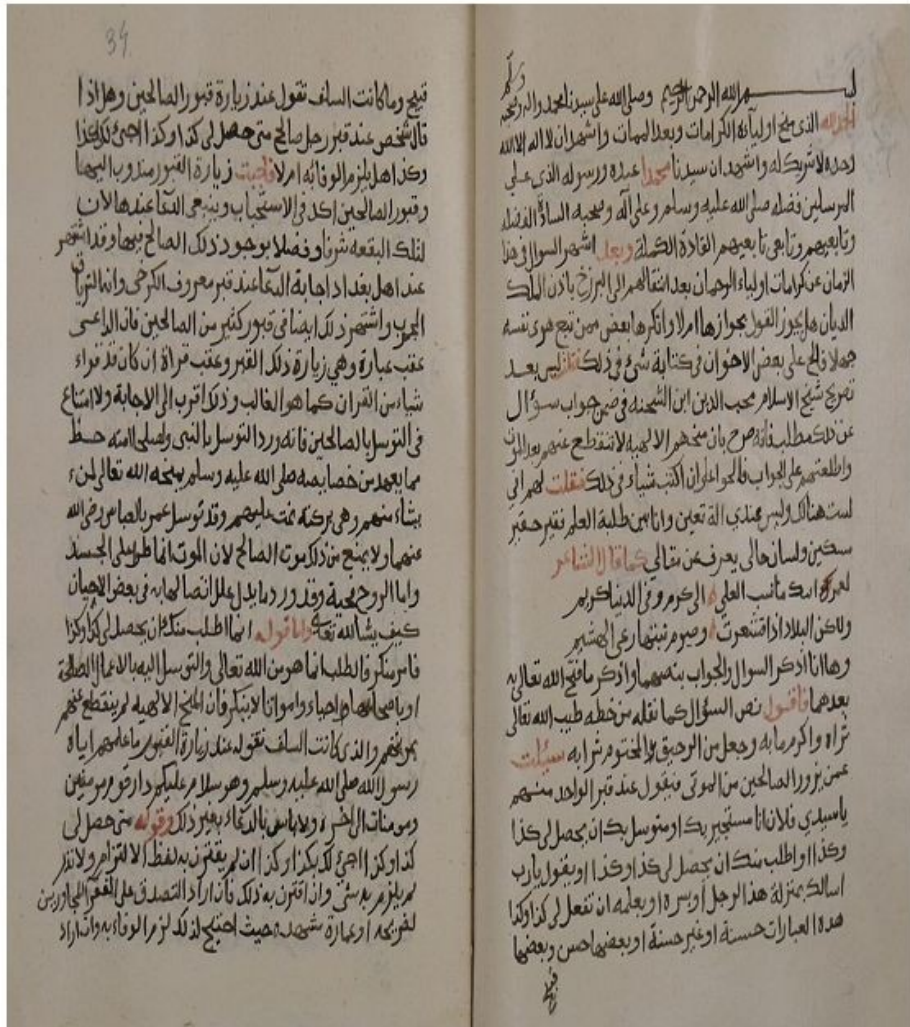 وسلم
بسم الله الرحمن الرحيم وصلى الله على سيدنا محمد واله وصحبه
الحمد لله الذي منح اوليآئه الكرامات وبعد الممات واشهد ان لا اله الا الله
وحده لا شريك له واشهد ان سيدنا محمدا عبده ورسوله الذي على
المرسلين فضله صلى الله عليه وسلم وعلى آله وصحبه السادة الفضله
وتابعيهم وتابعي تابعيهم القادة الكملة وبعد اشتهر السوال في هذا
الزمان عن كرامات اولياء الرحمان بعد انتقالهم الى البرزخ باذن الملك
الديان هل يجوز القول بجوازها ام لا وانكرها بعض ممن تبع هوى نفسه
جهلا فالح على بعض الاخوان في كتابة شئ في ذلك بعد
تصريح شيخ الاسلام محب الدين ابن الشحنه في ضمن جواب سؤال
عن ذلك مطلب فانه صرح بان منحهم الالهية لا تنقطع عنهم بعد الموت
واطلعتهم على الجواب فالحوا على ان اكتب شياء في ذلك فقلت لهم اني
لست هنالك وليس عندي الة تعين وانا من طلبة العلم فقير حقير
سكين ولسان حالي يعرف عن مقالي كما قال الشاعر
لعمرك ما نسب العلي الى كرم وفي الدنيا كريم
ولاكن البلاد اذا قشعرت وصوم نبتها رعى الهشيم
وها انا اذكر السوال والجواب بنصهما واذكر ما فتح الله تعالى به
بعدهما فاقول نص السؤال كما نقله من خطه طيب الله تعالى
ثراه واكرم مابه وجعل من الرحيق المختوم شرابه سئلت
عمن يزور الصالحين من الموتى فيقول عند قبر الواحد منهم
يا سيدي فلان انا مستجير بك او متوسل بك ان يحصل لي كذا
وكذا او اطلب منك ان يحصل لي كذا وكذا او يقول يارب
اسالك بمنزلة هذا الرجل او بسره او بعلمه ان تفعل لي كذا وكذا
هده العبارات حسنة او غير حسنة او بعضها حسن وبعضها
قبيح
34
قبيح وما كانت السلف تقول عند زيارة قبور الصالحين وهل اذا
قال الشخص عند قبر رجل صالح متى حصل لي كذا وكذا اجئ لك بكذا
وكذا هل يلزم الوفا به ام لا فاجبت زيارة القبور مندوب اليها
وقبور الصالحين اكد في الاستحباب وينبغي الدعآ عندها لان
لتلك البقعه شرفا وفضلا بوجود ذلك الصالح فيها وقد اشتهر
عند اهل بغداد اجابة الدعآ عند قبر معروف الكرخي وانه الترياق
المجرب واشتهر ذلك ايضا في قبور كثير من الصالحين فان الداعى
عقب عبارة وهي زيارة ذلك القبر وعقب قراة ان كان قد قراء
شياء من القران كما هو الغالب وذلك اقرب الى الاجابة ولا امتناع
في التوسل بالصالحين فانه ورد التوسل بالنبي ولصلحي امته حظ
مما يعهد من خصايصه صلى الله عليه وسلم يمنحه الله تعالى لمن
يشاء منهم وهي بركته عمت عليهم وقد توسل عمر بالعباس رضى الله
عنهما ولا يمنع من ذلك موت الصالح لان الموت انما طرا على الجسد
واما الروح فحية وقد ورد ما يدل على اتصالها به في بعض الاحيان
كيف يشا الله تعالى واما قوله انما اطلب منك ان يحصل لي كذا وكذا
فامر منكر فالطلب انما هو من الله تعالى والتوسل اليه بالاعمال الصالحة
او باصحابها احياء وامواتا لا ينكر فان المنح الالهيه لم ينقطع عنهم
بموتهم والذي كانت السلف تقوله عند زيارة القبور ما علمهم اياه
رسول الله صلى الله عليه وسلم وهو سلام عليكم دار قوم مومنين
ومومنات الى اخره ولا باس بالدعاء بغير ذلك وقوله متى حصل لي
كذا وكذا اجئ لك بكذا وكذا ان لم يقترن به لفظ الالتزام ولا نذر
لم يلزم به شئ وان اقترن به ذلك فان اراد التصدق على الفقرآ المجاورين
لضريحه او عمارة مشهده حيث احتيج لذلك لزم الوفاء به وان اراد